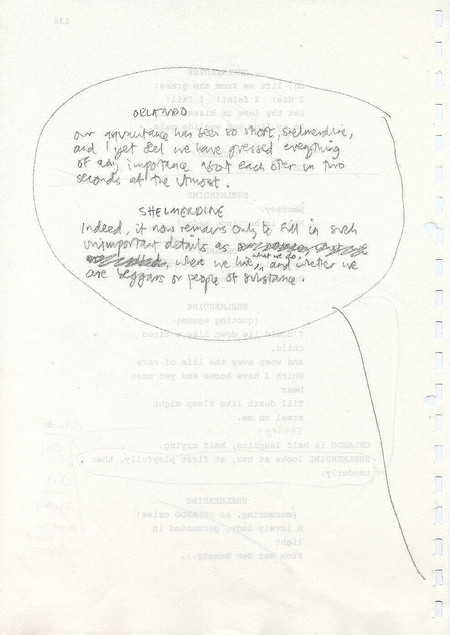 134
SHELMERDINE
Oh, lift me from the grass!
I die! I faint! I fail!
Let thy love in kisses
ORLANDO
Our aquaintance has been so short, Shelmerdine,
and I yet feel we have guessed everything
of any importance about each other in two
seconds at the utmost.
SHELMERDINE
Indeed, it now remains only to fill in such
unimportant details as
what we do,
where we live, and whether we
are beggars or people of substance.
SHELMERDINE
(quoting again)
I could lie down like a tired
child,
And weep away the life of care
Which I have borne and yet must
bear
Till death like sleep might
steal on me.
ORLANDO is half laughing, half crying.
SHELMERDINE looks at her, at first playfully, then
tenderly.
SHELMERDINE
(murmuring, as ORLANDO cries)
A lovely lady, garmented in
light
From her own beauty...